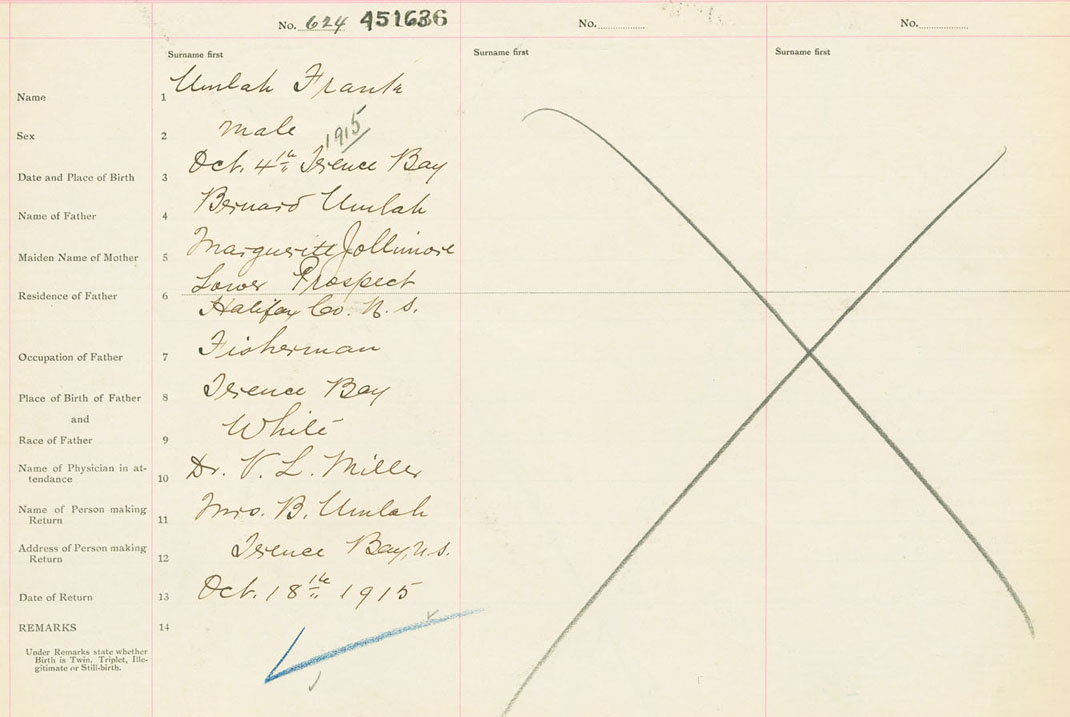 No. 624 451636
No.
No.
Surname first
Surname first
Surname first
Name 1 Umlah Frank
Sex 2 male
1915
Date and Place of Birth 3 Oct. 4th Terence Bay
Name of Father 4 Bernard Umlah
Maiden Name of Mother 5 Marguerite Jollimore
Residence of Father 6 Lower Prospect
Halifax Co. N. S.
Occupation of Father 7 Fisherman
Place of Birth of Father 8 Terence Bay
and
Race of Father 9 White
Name of Physician in at-
tendance 10 Dr. V. L. Miller
Name of Person making
Return 11 Mrs. B. Umlah
Address of Person making
Return 12 Terence Bay, N.S.
Date of Return 13 Oct. 18th 1915
REMARKS 14
Under Remarks state whether
Birth is Twin, Triplet, Ille-
gitimate or Still-birth.